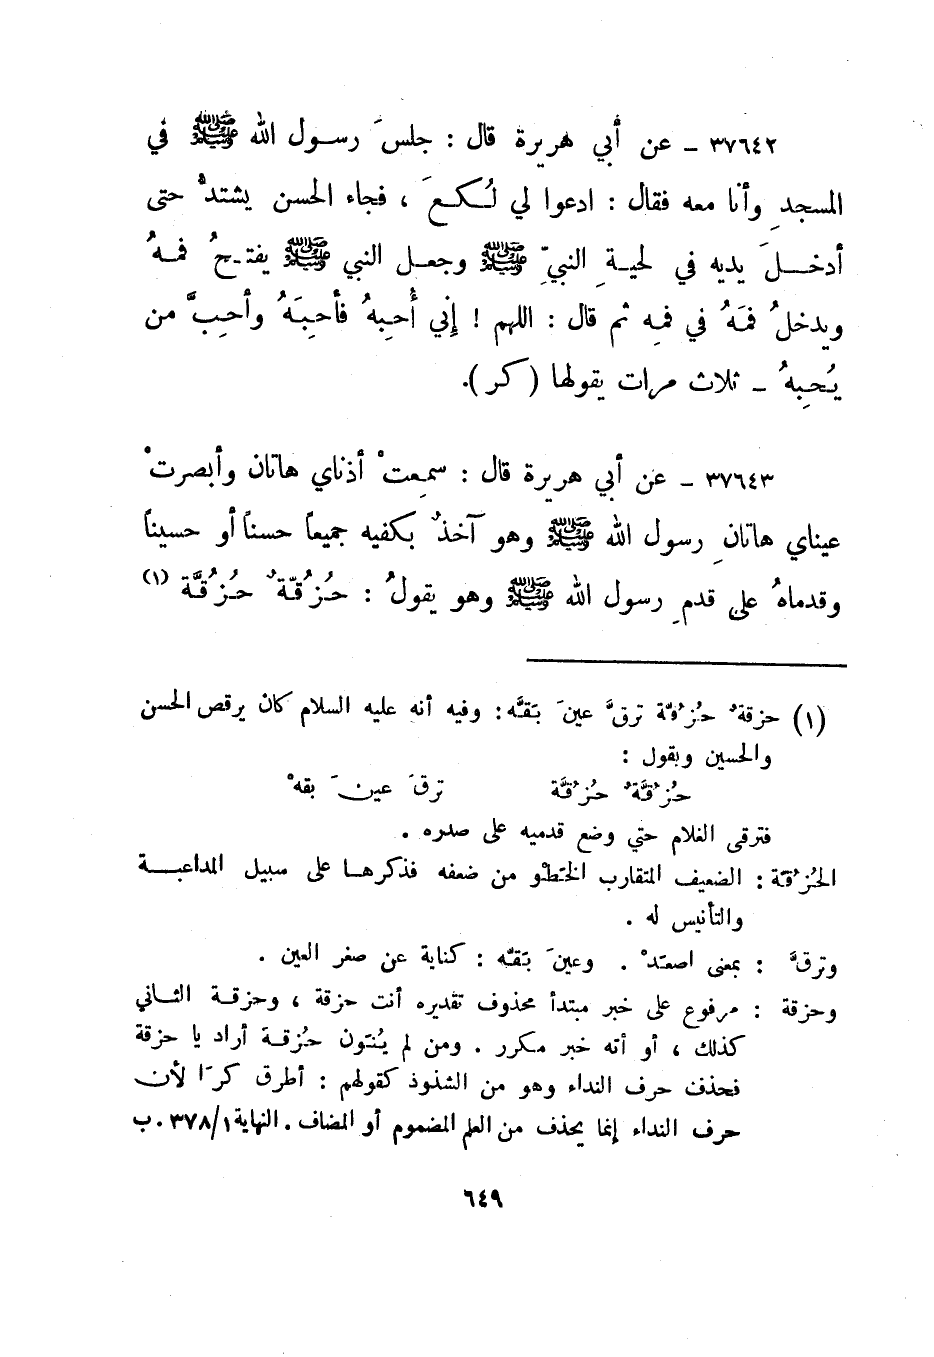 ٣٧٦٤٢ ـ عن أبي هريرة قال : جلسَ رسول الله ﷺ في
المسجدِ وأنا معه فقال : ادعوا لي لُكعَ ، فجاء الحسن يشتدْ حتى
أدخلَ يديه في لحيةِ النبيِّ ﷺ وجعل النبي ﷺ يفتحُ فمهُ
ويدخلُ فمَهُ في فمِه ثم قال : اللهم ! إني أُحبِهُ فأحبَهُ وأحبَّ من
يُحبِهُ ـ ثلاث مرات يقولها ( كر ).
٣٧٦٤٣ ـ عن أبي هريرة قال : سمعتْ أذناي هاتان وأبصرتْ
عيناي هاتانِ رسول الله ﷺ وهو آخذٌ بكفيه جميعاً حسناً أو حسيناً
وقدماهُ على قدمِ رسول الله ﷺ وهو يقولُ : حُزُقّةٌ حُزُقَّة (١)
(١) حزقةٌ حُزُقّة ترقَّ عينَ بَقَّه : وفيه أنه عليه السلام كان يرقص الحسن
والحسين ويقول :
حُزُقَّةٌ حُزُقَّة ترقَ عينَ بقهْ
فترقى الغلام حتي وضع قدميه على صدره .
الحُزُقّة : الضعيف المتقارب الخَطْو من ضعفه فذكرها على سبيل المداعبة
والتأنيس له .
وترقَّ : بمعنى اصعَدْ . وعينَ بَقَّه : كناية عن صغر العين .
وحزقة : مرفوع على خبر مبتدأ محذوف تقديره أنت حزقة ، وحزقة الثاني
كذلك ، أو أنه خبر مكرر . ومن لم يُنَون حُزقة أراد يا حزقة
فحذف حرف النداء وهو من الشذوذ كقولهم : أطرق كرَا لأن
حرف النداء إنما يحذف من العلم المضموم أو المضاف . النهاية ٣٧٨/١ . ب
٦٤٩